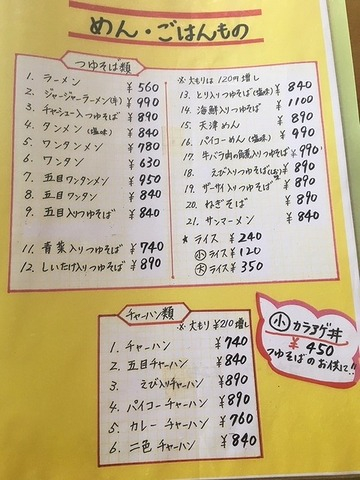 めん・ごはんもの
つゆそば類
1. ラーメン ¥560
2. ジャージャーラーメン(辛) ¥990
3. チャシュー入つゆそば ¥890
4. タンメン(塩味) ¥840
5. ワンタンメン ¥780
6. ワンタン ¥630
7. 五目ワンタンメン ¥950
8. 五目ワンタン ¥840
9. 五目入りつゆそば ¥840
11. 青菜入りつゆそば ¥740
12. しいたけ入りつゆそば ¥890
※ 大もりは120円増し
13. とり入りつゆそば(塩味) ¥840
14. 海鮮入りつゆそば ¥1100
15. 天津めん ¥890
16. パイコーめん(塩味) ¥990
17. 牛バラ肉の醤油煮入りつゆそば ¥990
18. えび入りつゆそば(しお) ¥890
19. ザーサイ入りつゆそば ¥890
20. ねぎそば ¥890
21. サンマーメン ¥840
★ ライス ¥240
小ライス ¥120
大ライス ¥350
チャーハン類
※ 大もり¥210増し
1. チャーハン ¥740
2. 五目チャーハン ¥840
3. えび入りチャーハン ¥890
4. パイコーチャーハン ¥890
5. カレーチャーハン ¥760
6. 二色チャーハン ¥840
小 カラアゲ丼
¥450
つゆそばのお供に!!